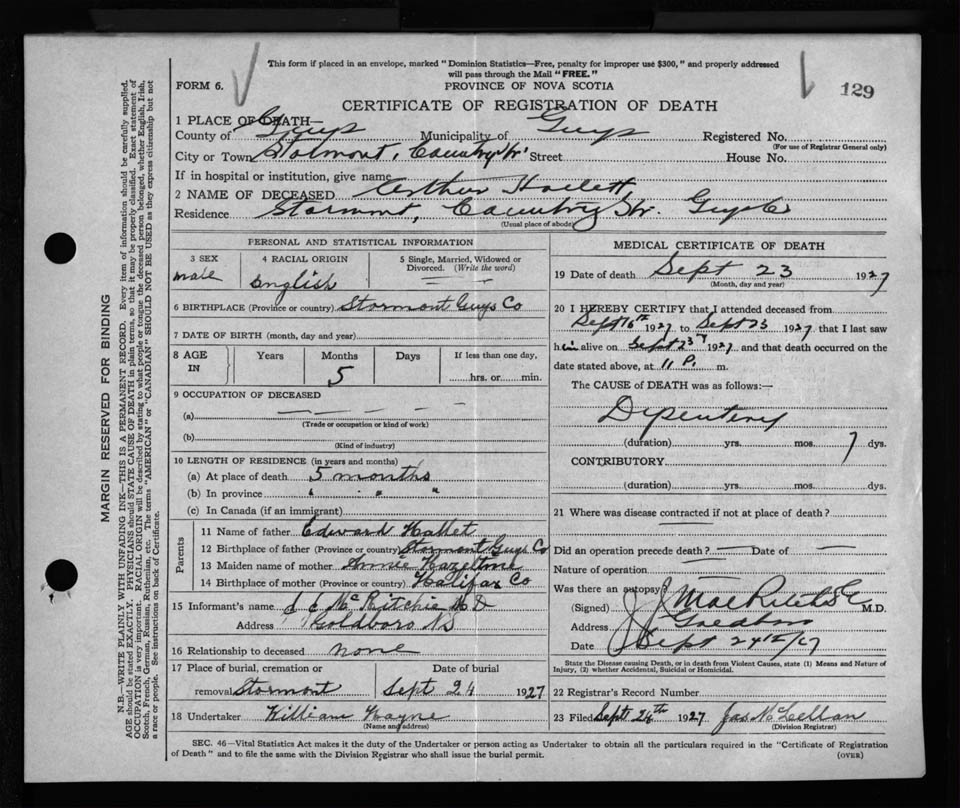 This form if placed in an envelope, marked "Dominion Statistics—Free, penalty for improper use $300," and properly addressed
will pass through the Mail "FREE."
FORM 6.
PROVINCE OF NOVA SCOTIA
129
CERTIFICATE OF REGISTRATION OF DEATH
1 PLACE OF DEATH—
County of Guys Municipality of Guys Registered No.
(For use of Registrar General only)
City or Town Stormont, Country Hr. Street House No.
If in hospital or institution, give name
2 NAME OF DECEASED Arthur Hallett
Residence Stormont, Country Hr. Guys Co
(Usual place of abode)
PERSONAL AND STATISTICAL INFORMATION
3 SEX 4 RACIAL ORIGIN 5 Single, Married, Widowed or Divorced. (Write the word)
male English
6 BIRTHPLACE (Province or country) Stormont Guys Co
7 DATE OF BIRTH (month, day and year)
8 AGE IN Years Months Days If less than one day,
5 hrs. or min.
9 OCCUPATION OF DECEASED
(a) — — —
(Trade or occupation or kind of work)
(b)
(Kind of industry)
10 LENGTH OF RESIDENCE (in years and months)
(a) At place of death 5 months
(b) In province " " "
(c) In Canada (if an immigrant)
Parents
11 Name of father Edward Hallet
12 Birthplace of father (Province or country) Stormont Guys Co
13 Maiden name of mother Annie
14 Birthplace of mother (Province or country) Halifax Co
15 Informant's name J J McRitchie M D
Address Goldboro NS
16 Relationship to deceased none
17 Place of burial, cremation or Date of burial
removal Stormont Sept 24 1927
18 Undertaker William Hayne
(Name and address)
MEDICAL CERTIFICATE OF DEATH
19 Date of death Sept 23 1927
(Month, day and year)
20 I HEREBY CERTIFY that I attended deceased from
Sept 16th 1927 to Sept 23 1927 that I last saw
him alive on Sept 23rd 1927 and that death occurred on the
date stated above, at 11 P. m.
The CAUSE of DEATH was as follows:—
Dysentery
(duration) yrs. mos. 7 dys.
CONTRIBUTORY
(duration) yrs. mos. dys.
21 Where was disease contracted if not at place of death?
Did an operation precede death? — Date of —
Nature of operation
Was there an autopsy?
(Signed) J J MacRitchie M.D.
Address Goldboro
Date Sept 24th/27
State the Disease causing Death, or in death from Violent Causes, state (1) Means and Nature of
Injury, (2) whether Accidental, Suicidal or Homicidal.
22 Registrar's Record Number
23 Filed Sept 26th 1927 Jas McLellan
(Division Registrar)
SEC. 46—Vital Statistics Act makes it the duty of the Undertaker or person acting as Undertaker to obtain all the particulars required in the "Certificate of Registration
of Death" and to file the same with the Division Registrar who shall issue the burial permit.
(OVER)
MARGIN RESERVED FOR BINDING
N.B.—WRITE PLAINLY WITH UNFADING INK—THIS IS A PERMANENT RECORD. Every item of information should be carefully supplied.
AGE should be stated EXACTLY. PHYSICIANS should STATE CAUSE OF DEATH in plain terms, so that it may be properly classified. Exact statement of
OCCUPATION is very important. RACIAL ORIGIN will be described by stating to what people or tongue the deceased person belonged, whether English, Irish,
Scotch, French, German, Russian, Ruthenian, etc. The terms "AMERICAN" or "CANADIAN" SHOULD NOT BE USED as they express citizenship but not
a race or people. See instructions on back of Certificate.